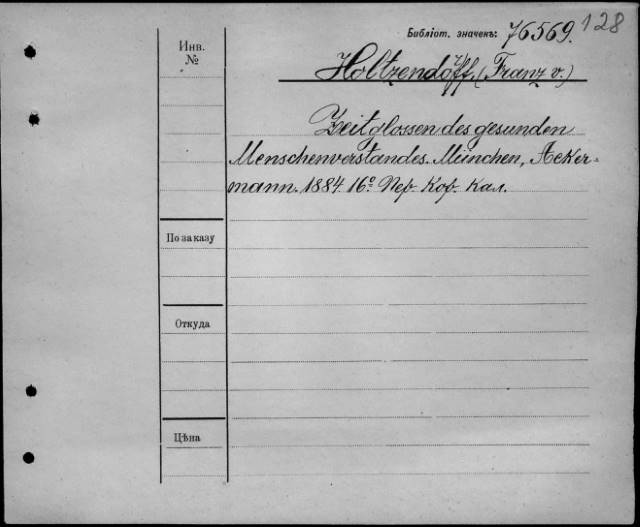 128
Библіот. значекъ: 76569.
Инв.
№
Holtzendorff, (Franz v.)
Zeitglossen des gesunden
Menschenverstandes. München, Acker-
mann. 1884. 16º Пер. Коф. Кал.
По заказу
Откуда
Цѣна